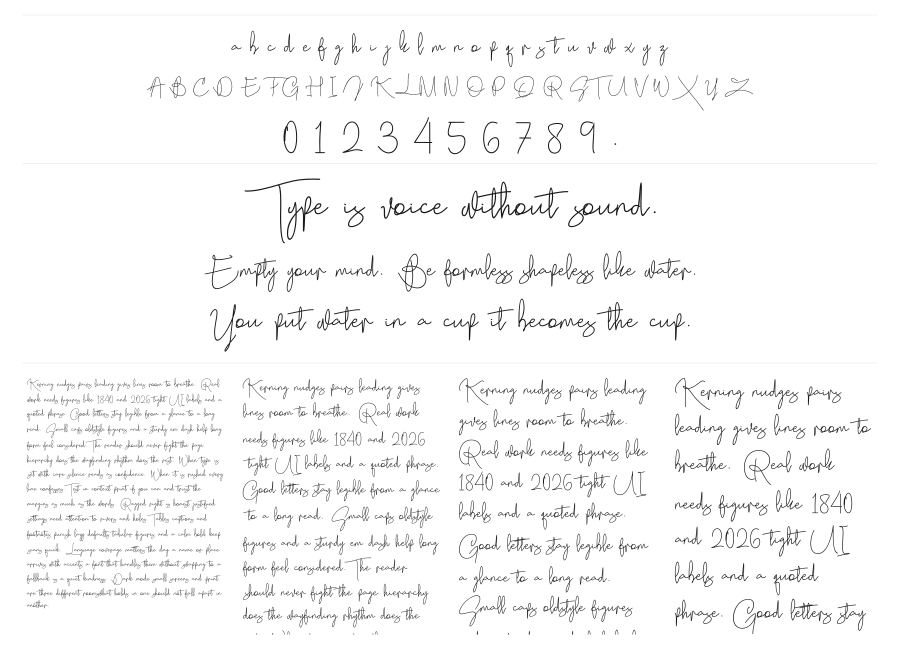 a b c d e f g h i j k l m n o p q r s t u v w x y z
A B C D E F G H I J K L M N O P Q R S T U V W X Y Z
0 1 2 3 4 5 6 7 8 9 .
Type is voice without sound.
Empty your mind. Be formless shapeless like water.
You put water in a cup it becomes the cup.
Kerning nudges pairs leading gives lines room to breathe. Real
work needs figures like 1840 and 2026 tight UI labels and a
quoted phrase. Good letters stay legible from a glance to a long
read. Small caps oldstyle figures and a sturdy em dash help long
form feel considered. The reader should never fight the page
hierarchy does the wayfinding rhythm does the rest. When type is
set with care silence reads as confidence. When it is rushed every
line confesses. Test in context print if you can and trust the
margins as much as the words. Ragged right is honest justified
settings need attention to rivers and holes. Tables captions and
footnotes punish lazy defaults tabular figures and a calm bold keep
scans quick. Language coverage matters the day a name or place
arrives with accents a font that handles them without shopping to a
fallback is a quiet kindness. Dark mode small screens and print
are three different rooms that bolds in one should not fall apart in
another.
Kerning nudges pairs leading gives
lines room to breathe. Real work
needs figures like 1840 and 2026
tight UI labels and a quoted phrase.
Good letters stay legible from a glance
to a long read. Small caps oldstyle
figures and a sturdy em dash help long
form feel considered. The reader
should never fight the page hierarchy
does the wayfinding rhythm does the
Kerning nudges pairs leading
gives lines room to breathe.
Real work needs figures like
1840 and 2026 tight UI
labels and a quoted phrase.
Good letters stay legible from
a glance to a long read.
Small caps oldstyle figures
Kerning nudges pairs
leading gives lines room to
breathe. Real work
needs figures like 1840
and 2026 tight UI
labels and a quoted
phrase. Good letters stay